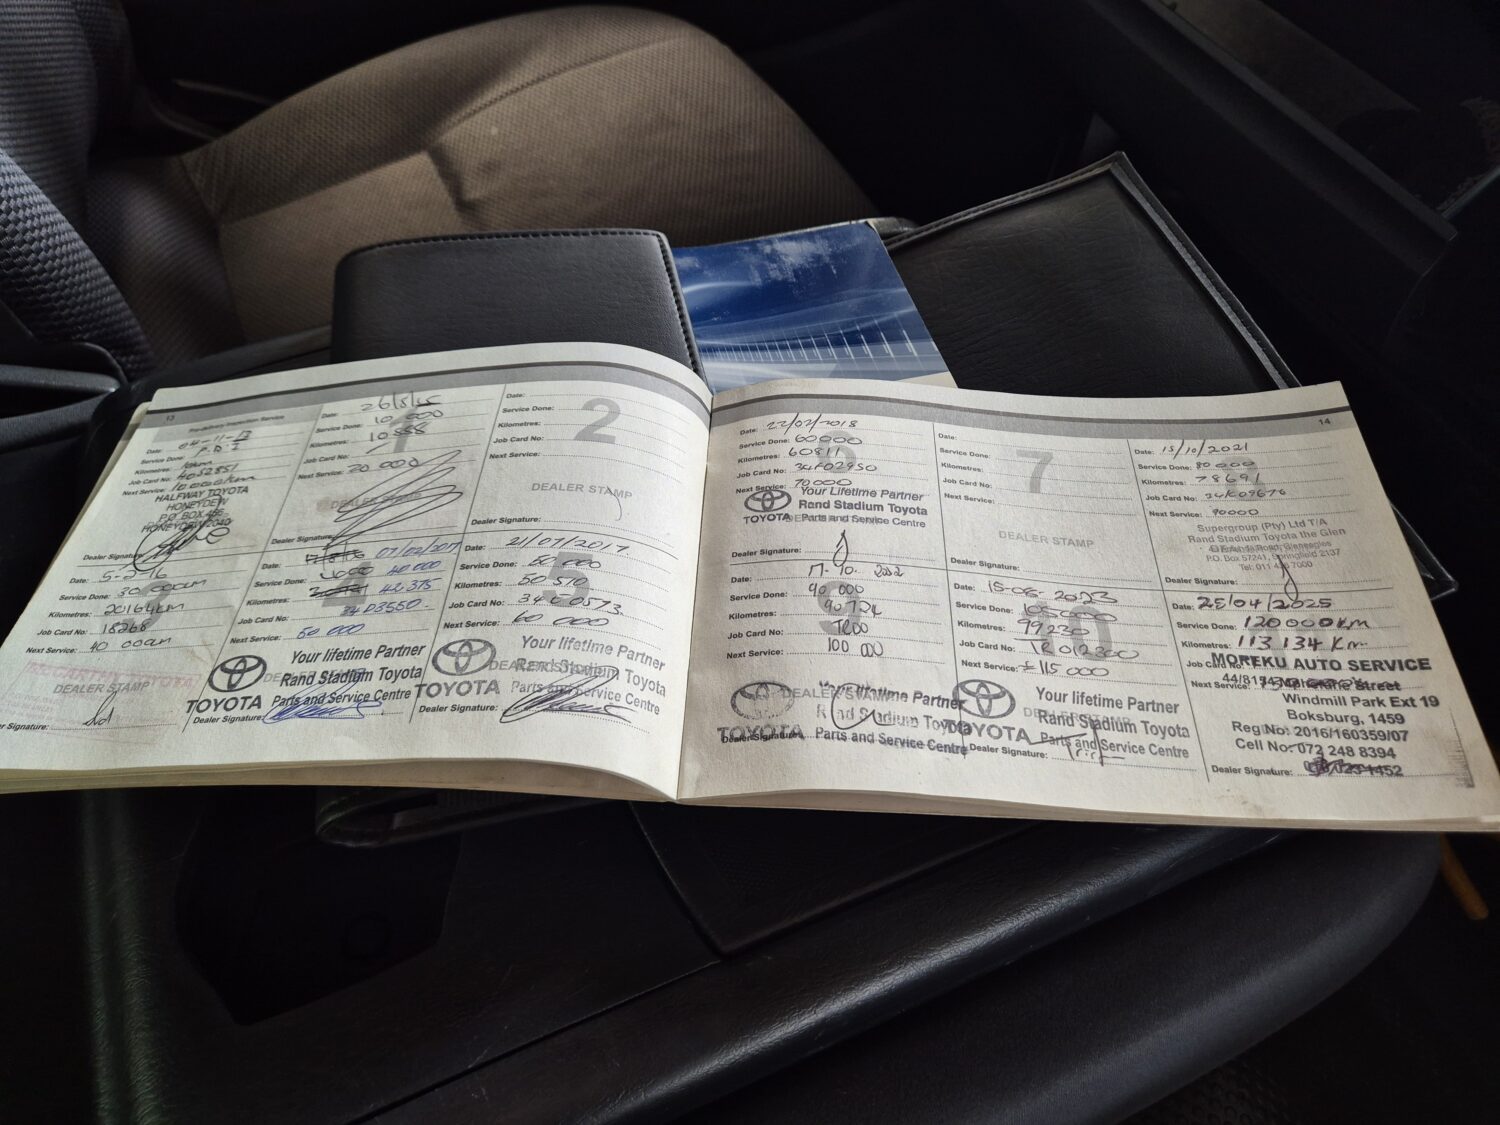 13
Pre-delivery Inspection Service
Date: 04-11-13
Service Done: P.D.I
Kilometres: 10km
Job Card No: 4052851
Next Service: 10000km
HALFWAY TOYOTA
HONEYDEW
P.O BOX 456
HONEYDEW 2040
Dealer Signature:
1
Date: 26/8/15
Service Done: 10 000
Kilometres: 10 588
Job Card No:
Next Service: 20 000
DEALER STAMP
Dealer Signature:
2
Date:
Service Done:
Kilometres:
Job Card No:
Next Service:
DEALER STAMP
Dealer Signature:
Date: 5-2-16
Service Done: 30 000km
Kilometres: 20164km
Job Card No: 18268
Next Service: 40 000km
McCARTHY TOYOTA
DEALER STAMP
Signature:
4
Date: 07/02/2017
Service Done: 40 000
Kilometres: 42 375
Job Card No: 34P3550
Next Service: 50 000
Your lifetime Partner
Rand Stadium Toyota
TOYOTA Parts and Service Centre
Dealer Signature:
5
Date: 21/07/2017
Service Done: 50 000
Kilometres: 50 510
Job Card No:
Next Service: 60 000
DEALER
Your lifetime Partner
Rand Stadium Toyota
TOYOTA Parts and Service Centre
Dealer Signature:
14
6
Date: 22/02/2018
Service Done: 60000
Kilometres: 60811
Job Card No: 34F02950
Next Service: 70000
Your Lifetime Partner
Rand Stadium Toyota
TOYOTA Parts and Service Centre
Dealer Signature:
7
Date:
Service Done:
Kilometres:
Job Card No:
Next Service:
DEALER STAMP
Dealer Signature:
Date: 15/10/2021
Service Done: 80 000
Kilometres: 78691
Job Card No: 34K09676
Next Service: 90000
Supergroup (Pty) Ltd T/A
Rand Stadium Toyota the Glen
P.O. Box 57241, Springfield 2137
Dealer Signature:
9
Date: 17.10.2022
Service Done: 90 000
Kilometres:
Job Card No:
Next Service: 100 000
DEALER STAMP
Your lifetime Partner
Rand Stadium Toyota
TOYOTA Parts and Service Centre
Dealer Signature:
10
Date: 15-08-2023
Service Done:
Kilometres: 99230
Job Card No:
Next Service: ±115 000
Your lifetime Partner
Rand Stadium Toyota
TOYOTA Parts and Service Centre
Dealer Signature:
Date: 25/04/2025
Service Done: 120000km
Kilometres: 113 134 Km
Job C
MOREKU AUTO SERVICE
Next Service:
Street
Windmill Park Ext 19
Boksburg, 1459
Reg No: 2016/160359/07
Cell No: 072 248 8394
Dealer Signature: